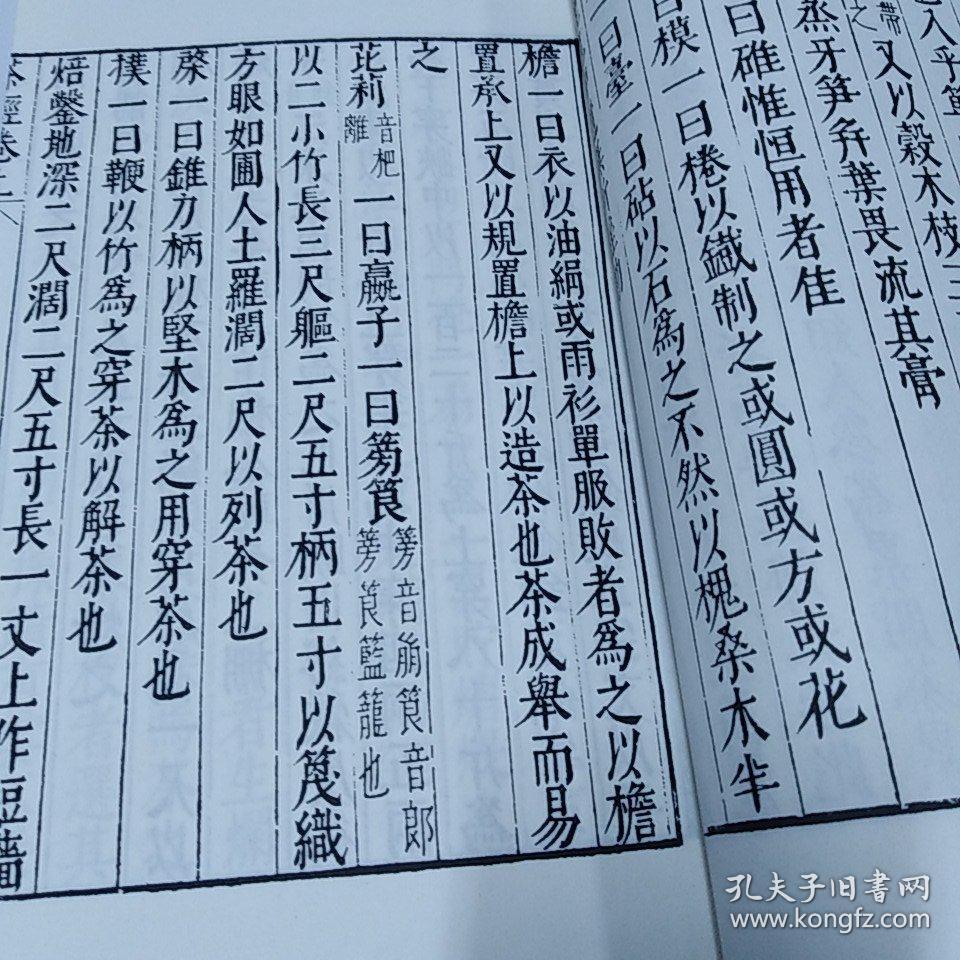 入乎箄
帶
之
又以榖木枝三
蒸牙笋并葉畏流其膏
曰碓惟恒用者佳
曰模一曰棬以鐵制之或圓或方或花
一曰臺一曰砧以石爲之不然以槐桑木半
檐一曰衣以油絹或雨衫單服敗者爲之以檐
置承上又以規置檐上以造茶也茶成舉而易
之
芘莉
音杷
離
一曰羸子一曰篣筤
篣音崩筤音郎
篣筤籃籠也
以二小竹長三尺軀二尺五寸柄五寸以篾織
方眼如圃人土羅濶二尺以列茶也
棨一曰錐刀柄以堅木爲之用穿茶也
撲一曰鞭以竹爲之穿茶以解茶也
焙鑿地深二尺濶二尺五寸長一丈上作短牆
茶經卷上
孔夫子旧書网
www.kongfz.com